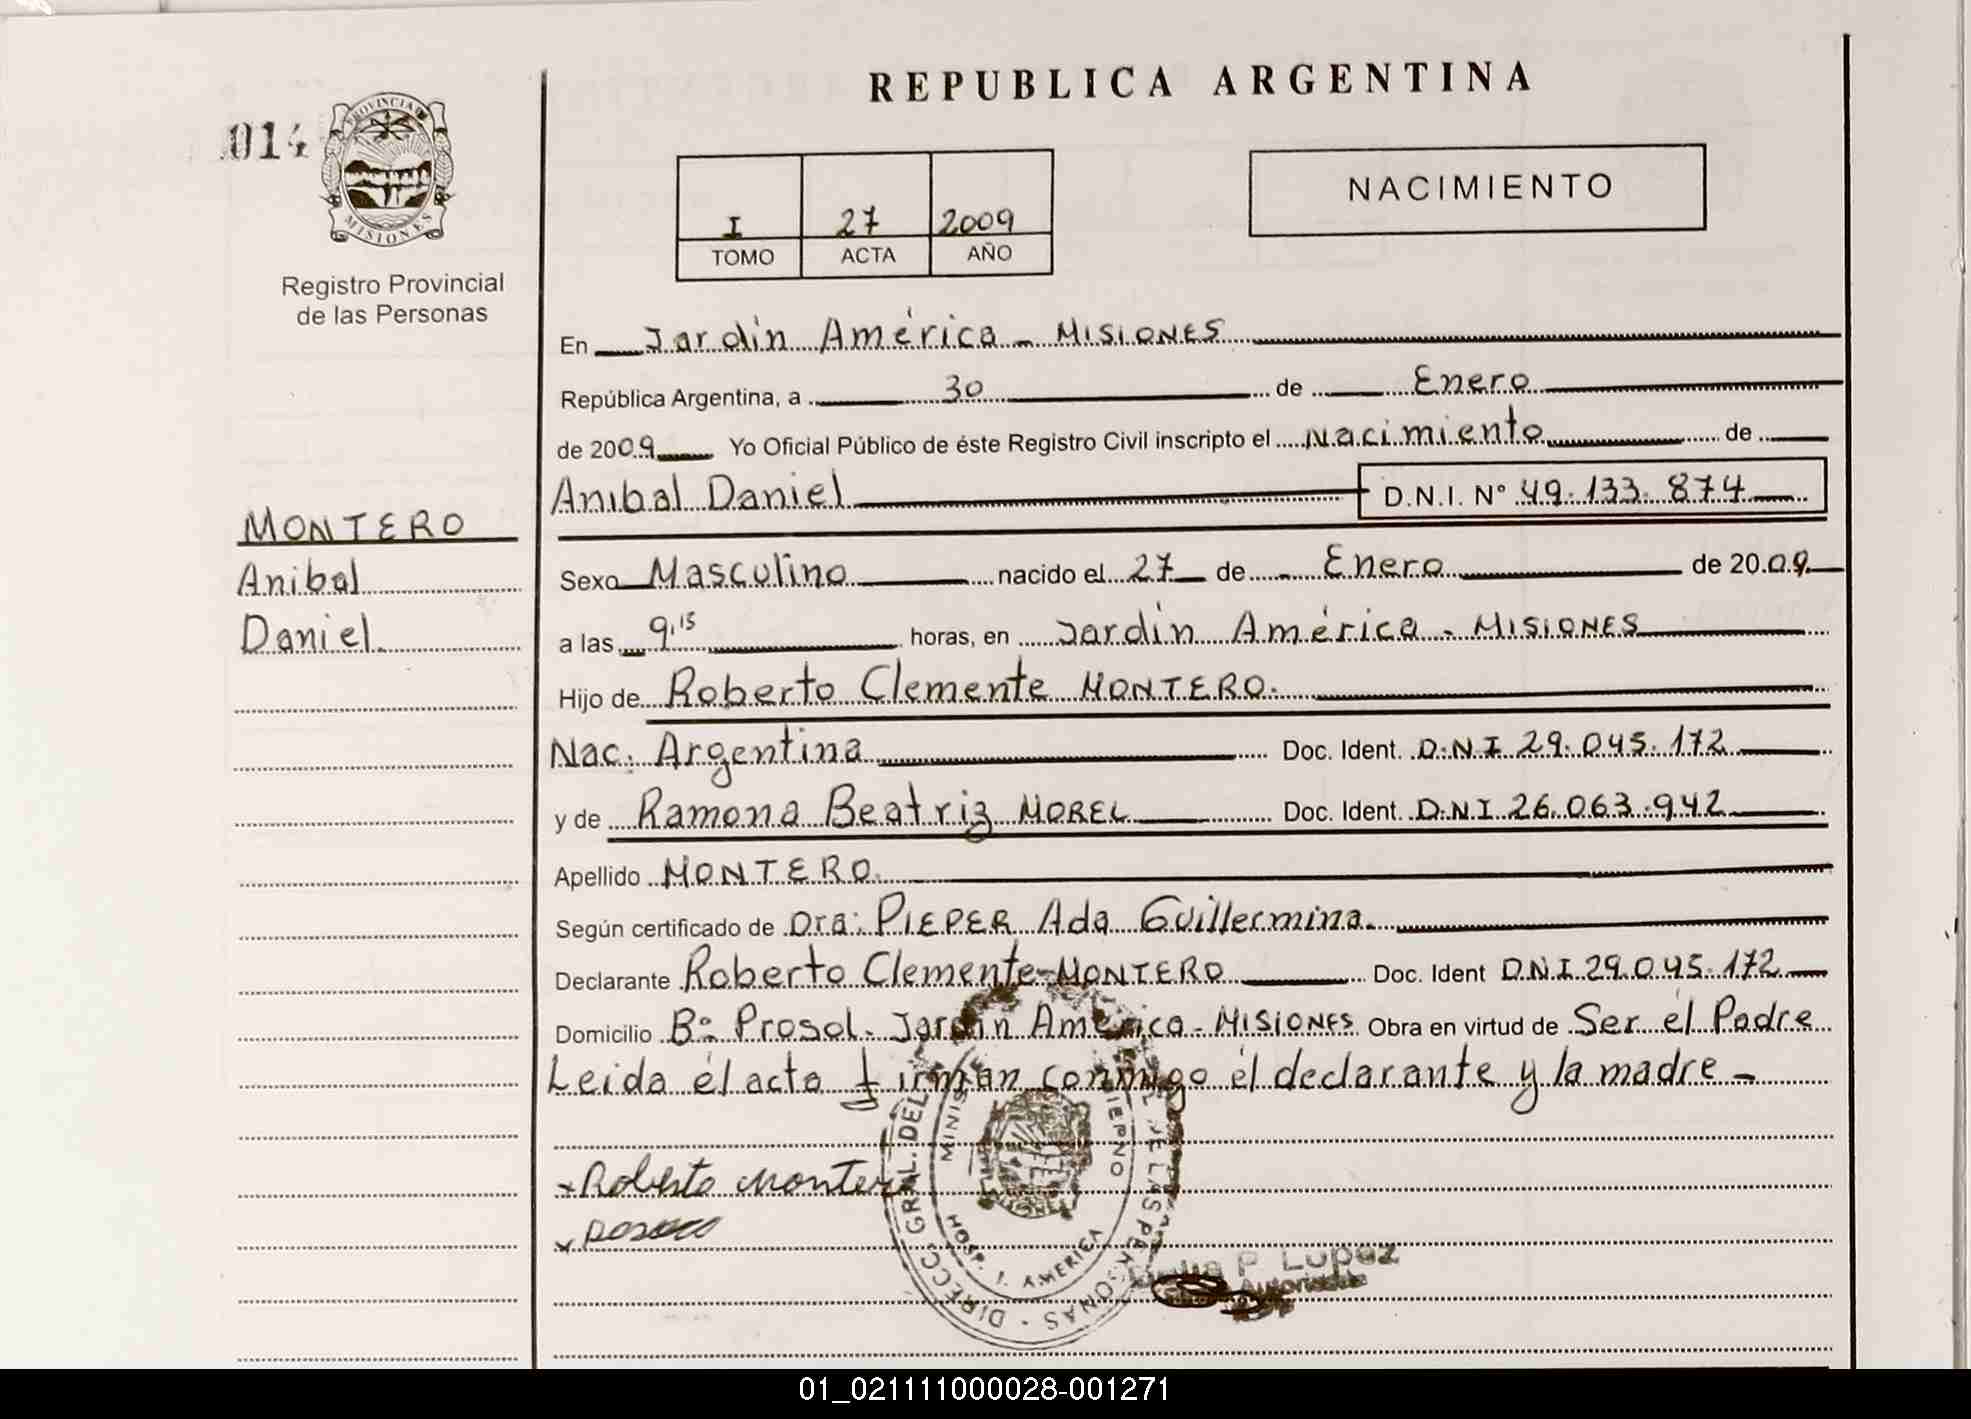 REPUBLICA ARGENTINA
014
PROVINCIA DE
MISIONES
Registro Provincial
de las Personas
I 27 2009
TOMO ACTA AÑO
NACIMIENTO
En Jardín América - MISIONES
República Argentina, a 30 de Enero
de 2009 Yo Oficial Público de éste Registro Civil inscripto el Nacimiento de
Anibal Daniel D.N.I. Nº 49.133.874
MONTERO
Anibal
Daniel.
Sexo Masculino nacido el 27 de Enero de 2009
a las 9,15 horas, en Jardín América - MISIONES
Hijo de Roberto Clemente MONTERO.
Nac. Argentina Doc. Ident. D.N.I 29.045.172
y de Ramona Beatriz MOREL Doc. Ident. D.N.I 26.063.942
Apellido MONTERO
Según certificado de Dra: PIEPER Ada Guillermina.
Declarante Roberto Clemente MONTERO Doc. Ident D.N.I 29.045.172
Domicilio Bº Prosol. Jardín América - MISIONES Obra en virtud de Ser él Padre
Leida él acta firman conmigo él declarante y la madre -
Roberto Montero
DIRECC. GRAL. DEL DE LAS PERSONAS
HOSP. J. AMERICA
P. Lopez
01_021111000028-001271